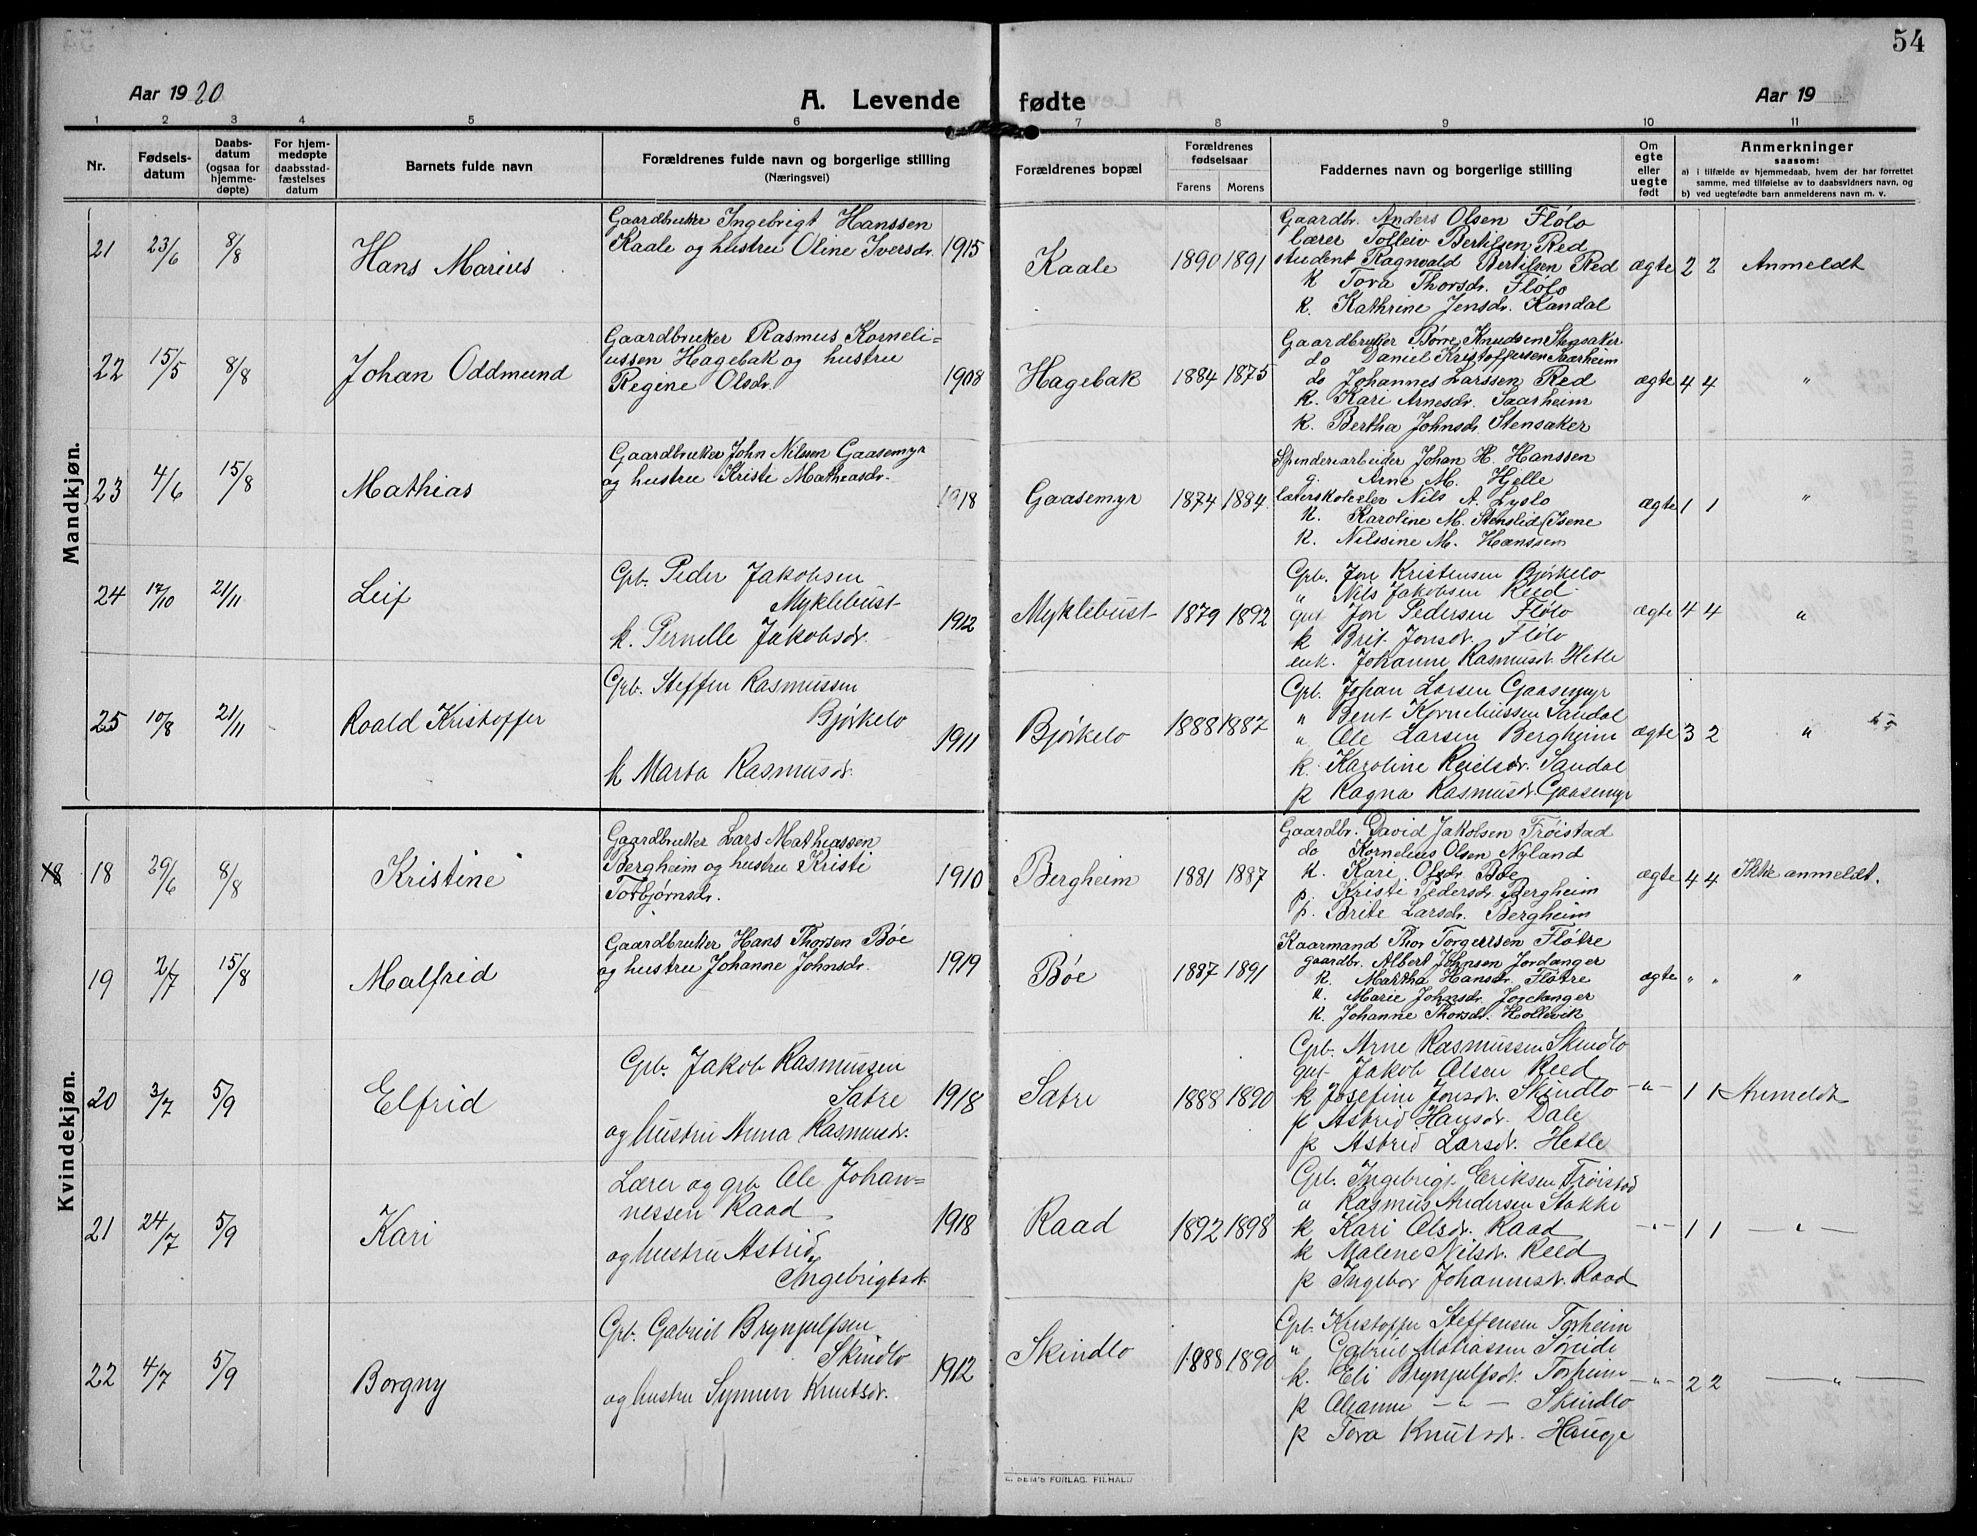 54
Aar 1920
A. Levende fødte
Aar 19
1 2 3 4 5 6 7 8 9 10 11
Nr.
Fødselsdatum
Daabsdatum (ogsaa for hjemmedøpte)
For hjemmedøpte daabsstadfæstelses datum
Barnets fulde navn
Forældrenes fulde navn og borgerlige stilling
(Næringsvei)
Forældrenes bopæl
Forældrenes fødselsaar
Farens Morens
Faddernes navn og borgerlige stilling
Om egte eller uegte født
Anmerkninger
saasom:
a) i tilfælde av hjemmedaab, hvem der har forrettet
samme, med tilføielse av to daabsvidners navn, og
b) ved uegtefødte barn anmelderens navn m. v.
Mandkjøn.
21 23/6 8/8 Hans Marius
Gaardbruker Ingebrigt Hanssen
Kaale og hustru Oline Iversdr. 1915
Kaale 1890 1891
Gaardbr. Anders Olsen Flólo
Lærer Tolleiv Bertilsen Red
student Ragnvald Bertilsen Red
k Tora Thorsdr. Flólo
k. Kathrine Jensdr. Kandal
ægte 2 2 Anmeldt
22 15/5 8/8 Johan Oddmund
Gaardbruker Rasmus Korneli=
ussen Hagebak og hustru
Regine Olsdr. 1908
Hagebak 1884 1875
Gaardbruker Børre Knudsen
do Daniel Kristoffersen Saarheim
do Johannes Larssen Red
k. Kari Arnesdr. Saarheim
k. Bertha Johnsdr. Stensaker
ægte 4 4 "
23 4/6 15/8 Mathias
Gaardbruker John Nilssen Gaasemyr
og hustru Kristi Mathiasdr. 1918
Gaasemyr 1874 1884.
Spinderiarbeider Johan H. Hanssen
g. Arne M. Hjelle
Nils A. Lyslo
k. Karoline M. Stenslid
k. Nilssine M. Hanssen
ægte 1 1 "
24 17/10 21/11 Leif
Grb. Peder Jakobsen
Myklebust
k. Pernille Jakobsdr. 1912
Myklebust 1879 1892
Grb. Jon Kristensen Bjørkelo
" Nils Jakobsen Reed
gut Jon Pedersen Flólo
k Brit Jonsdr. Flólo
enk. Johanne Rasmusdr. Hetle
ægte 4 4 "
25 10/8 21/11 Roald Kristoffer
Grb. Steffen Rasmussen
Bjørkelo
k Marta Rasmusdr. 1911
Bjørkelo 1888 1887
Grb. Johan Larsen Gaasemyr
" Bent Korneliussen Sandal
" Ole Larsen Bergheim
k. Karoline Sandal
p Ragna Rasmusdr. Gaasemyr
ægte 3 2 "
Kvindekjøn.
18 8/8 Kristine
Gaardbruker Lars Mathiassen
Bergheim og hustru Kristi
Torbjørnsdr. 1910
Bergheim 1881 1887
Gaardbr. David Jakobsen Trøistad
do Kornelius Olsen Nyland
k. Kari Olsdr. Bøe
p. Kristi Pedersdr. Bergheim
p. Brite Larsdr. Bergheim
ægte 4 4 Ikke anmeldt.
19 2/7 15/8 Malfrid
Gaardbruker Hans Thorsen Bøe
og hustru Johanne Johnsdr. 1919
Bøe 1887 1891
Kaarmand Thor Torgersen Fløtre
gaardbr. Albert Johnsen Jordanger
k. Martha Hansdr. Fløtre
k. Marie Johnsdr. Jordanger
k. Johanne Thorsdr. Hollevik
ægte " " "
20 3/7 5/9 Elfrid
Grb. Jakob Rasmussen
Satre
og hustru Anna Rasmusdr. 1918
Satre 1888 1890
Grb. Arne Rasmussen Skindlo
gut Jakob Olsen Reed
k Josefine Jonsdr. Skindlo
p Astrid Hansdr. Dale
p Astrid Larsdr. Hetle
-"- 1 1 Anmeldt
21 24/7 5/9 Kari
Lærer og grb. Ole Johan=
nessen Raad
og hustru Astrid
Ingebrigtsdr. 1918
Raad 1892 1898
Grb. Ingebrigt Eriksen Trøistad
" Rasmus Andersen Stokke
k Kari Olsdr. Raad
k Malene Nilsdr. Reed
p Ingebor Johannesdr. Raad
-"- 1 1 -"-
22 4/7 5/9 Borgny
Grb. Gabriel Brynjulfsen
Skindlo
og hustru Synneve Knutsdr. 1912
Skindlo 1888 1890
Grb. Kristoffer Steffensen Torheim
" Gabriel Matiassen
k. Eli Brynjulfsdr. Torheim
p Oleanna -"- Skindlo
p Tora Knutsdr. Hauge
-"- 2 2 -"-
E. SEM'S FORLAG. FR.HALD